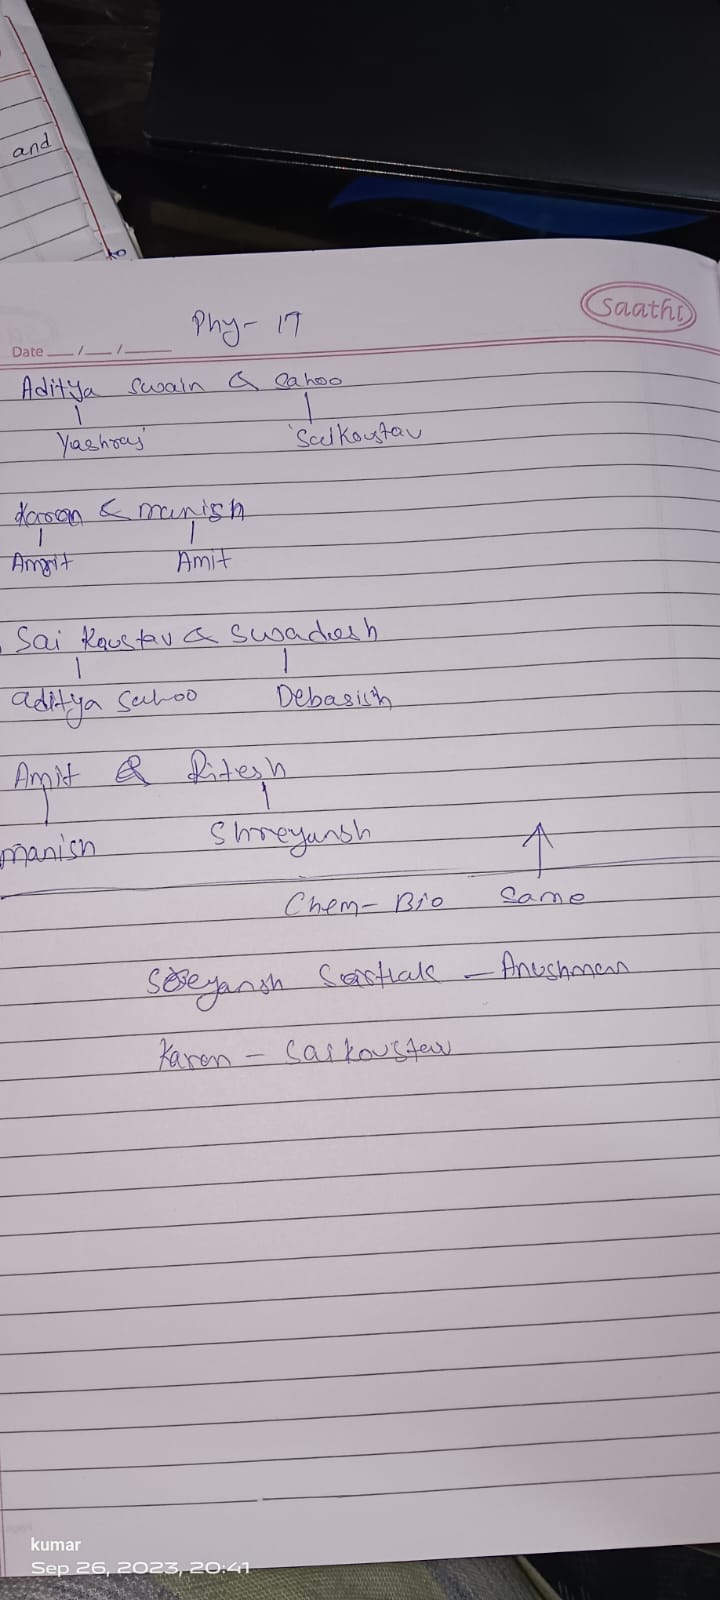 and
Phy- 17
saathi
Date __/__/____
Aditya Swain & Sahoo
Yashraj Saikoustav
Karan & manish
Amrit Amit
Sai Koustav & Swadesh
aditya Sahoo Debasish
Amit & Ritesh
manish Shreyansh
Chem- Bio Same
Sreyansh - Anushman
Karan - Saikoustav
kumar
Sep 26, 2023, 20:41